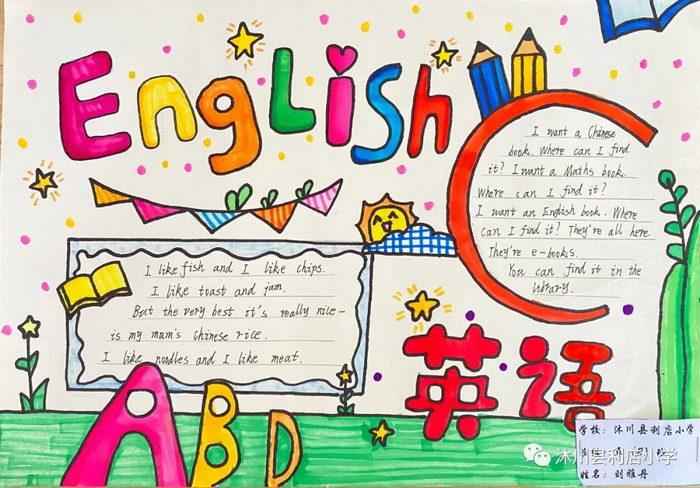 English
I want a Chinese
book. Where can I find
it? I want a Maths book.
Where can I find it?
I want an English book. Where
can I find it? They're all here
They're e-books.
You can find it in the
library.
I like fish and I like chips.
I like toast and jam.
But the very best it's really nice-
is my mum's chinese rice.
I like noodles and I like meat.
英语
ABD
学校: 沐川县利店小学
姓名: 刘雅丹
沐川县利店小学